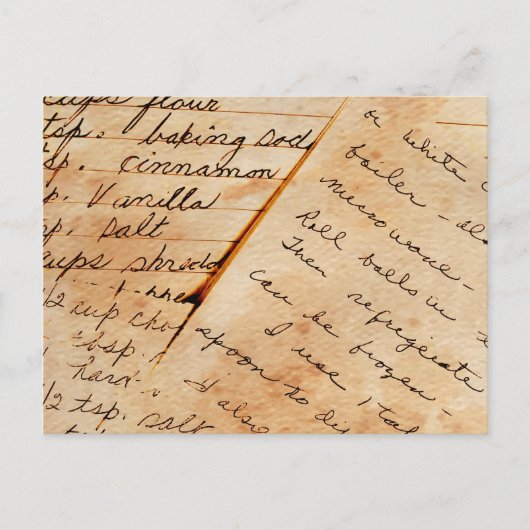 cups flour
tsp. baking sod
sp. cinnamon
p. Vanilla
p. salt
cups shredd
1/2 cup cho
tbsp.
hard-
1/2 tsp. salt
or white c
boiler - als
microwave -
Roll balls in
Then refrigerate
can be frozen -
I use 1 ta
spoon to di
I also